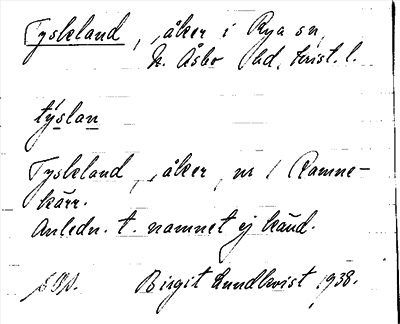 Tyskland, åker i Rya sn,
N. Åsbo hd, Krist. l.
týslan
Tyskland, åker, nr 1 Ramne-
kärr.
Anledn. t. namnet ej känd.
Birgit Lundkvist 1938.